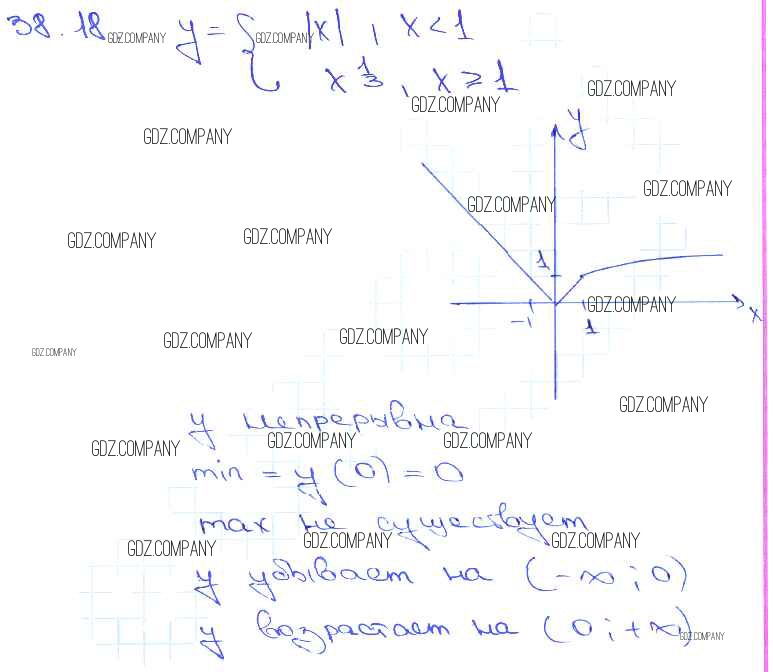 38.18 GDZ.COMPANY y = { GDZ.COMPANY |x|, x < 1
x^{1/3}, x ≥ 1
GDZ.COMPANY GDZ.COMPANY
GDZ.COMPANY y
GDZ.COMPANY GDZ.COMPANY
GDZ.COMPANY GDZ.COMPANY
1
GDZ.COMPANY x
-1 1
GDZ.COMPANY GDZ.COMPANY GDZ.COMPANY
GDZ.COMPANY
y непрерывна
GDZ.COMPANY GDZ.COMPANY GDZ.COMPANY
min = y(0) = 0
max не существует
GDZ.COMPANY GDZ.COMPANY GDZ.COMPANY
y убывает на (-∞; 0)
y возрастает на (0; +∞) GDZ.COMPANY